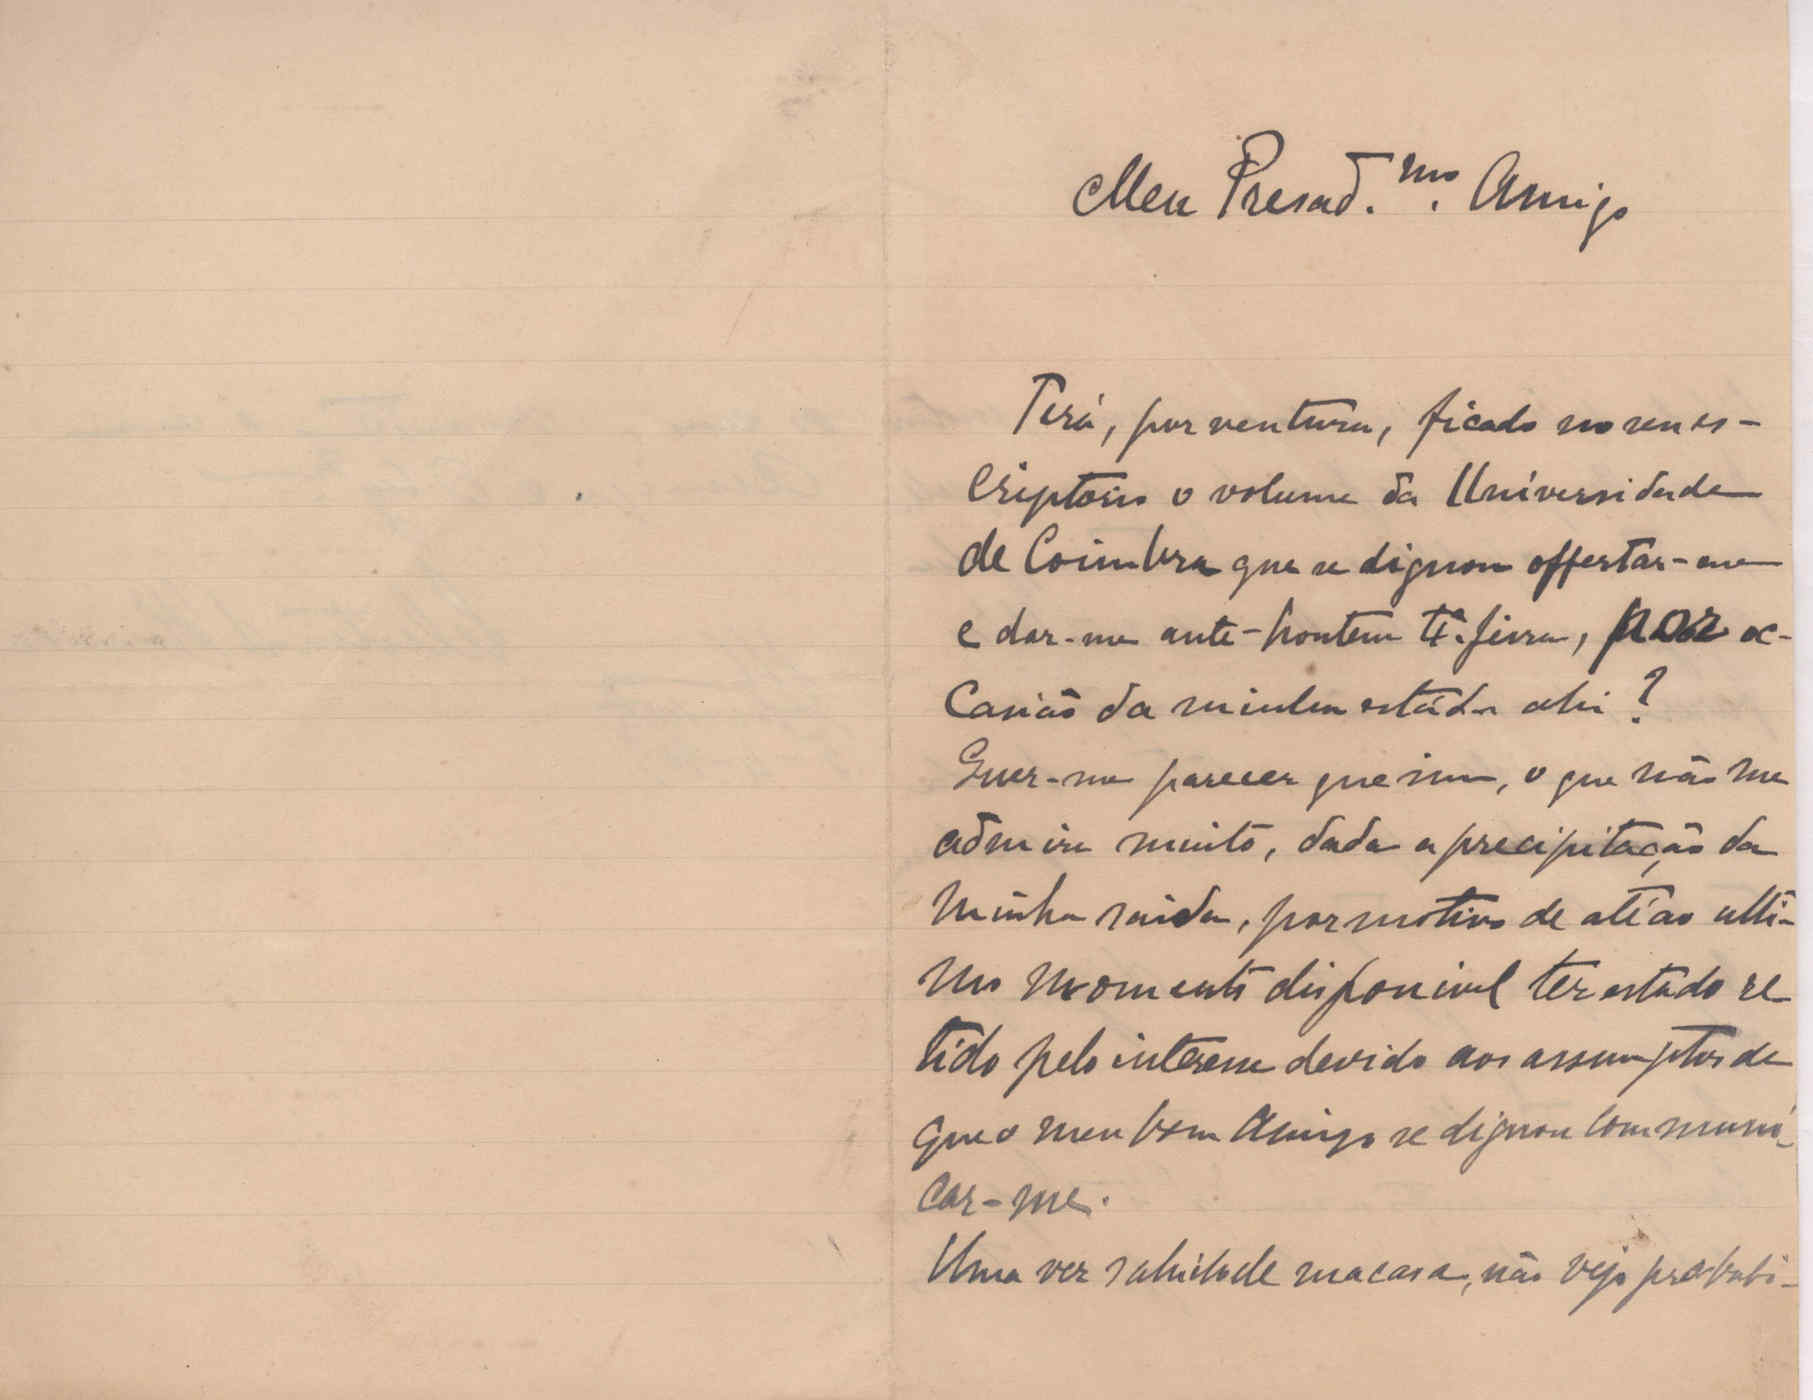 Meu Presad.mo. Amigo
Terá, por ventura, ficado no seu es-
criptorio o volume da Universidade
de Coimbra que se dignou offertar-me
e dar-me ante-hontem 4ª. feira, por oc-
casião da minha estáda ahi?
Quer-me parecer que sim, o que não me
admira muito, dada a precipitação da
minha saida, por motivo de até ao ulti-
mo momento disponivel ter estado re
tido pelo interesse devido aos assumptos de
que o meu bom Amigo se dignou communi-
car-me.
Uma vez sahido de sua casa, não vejo probabi-